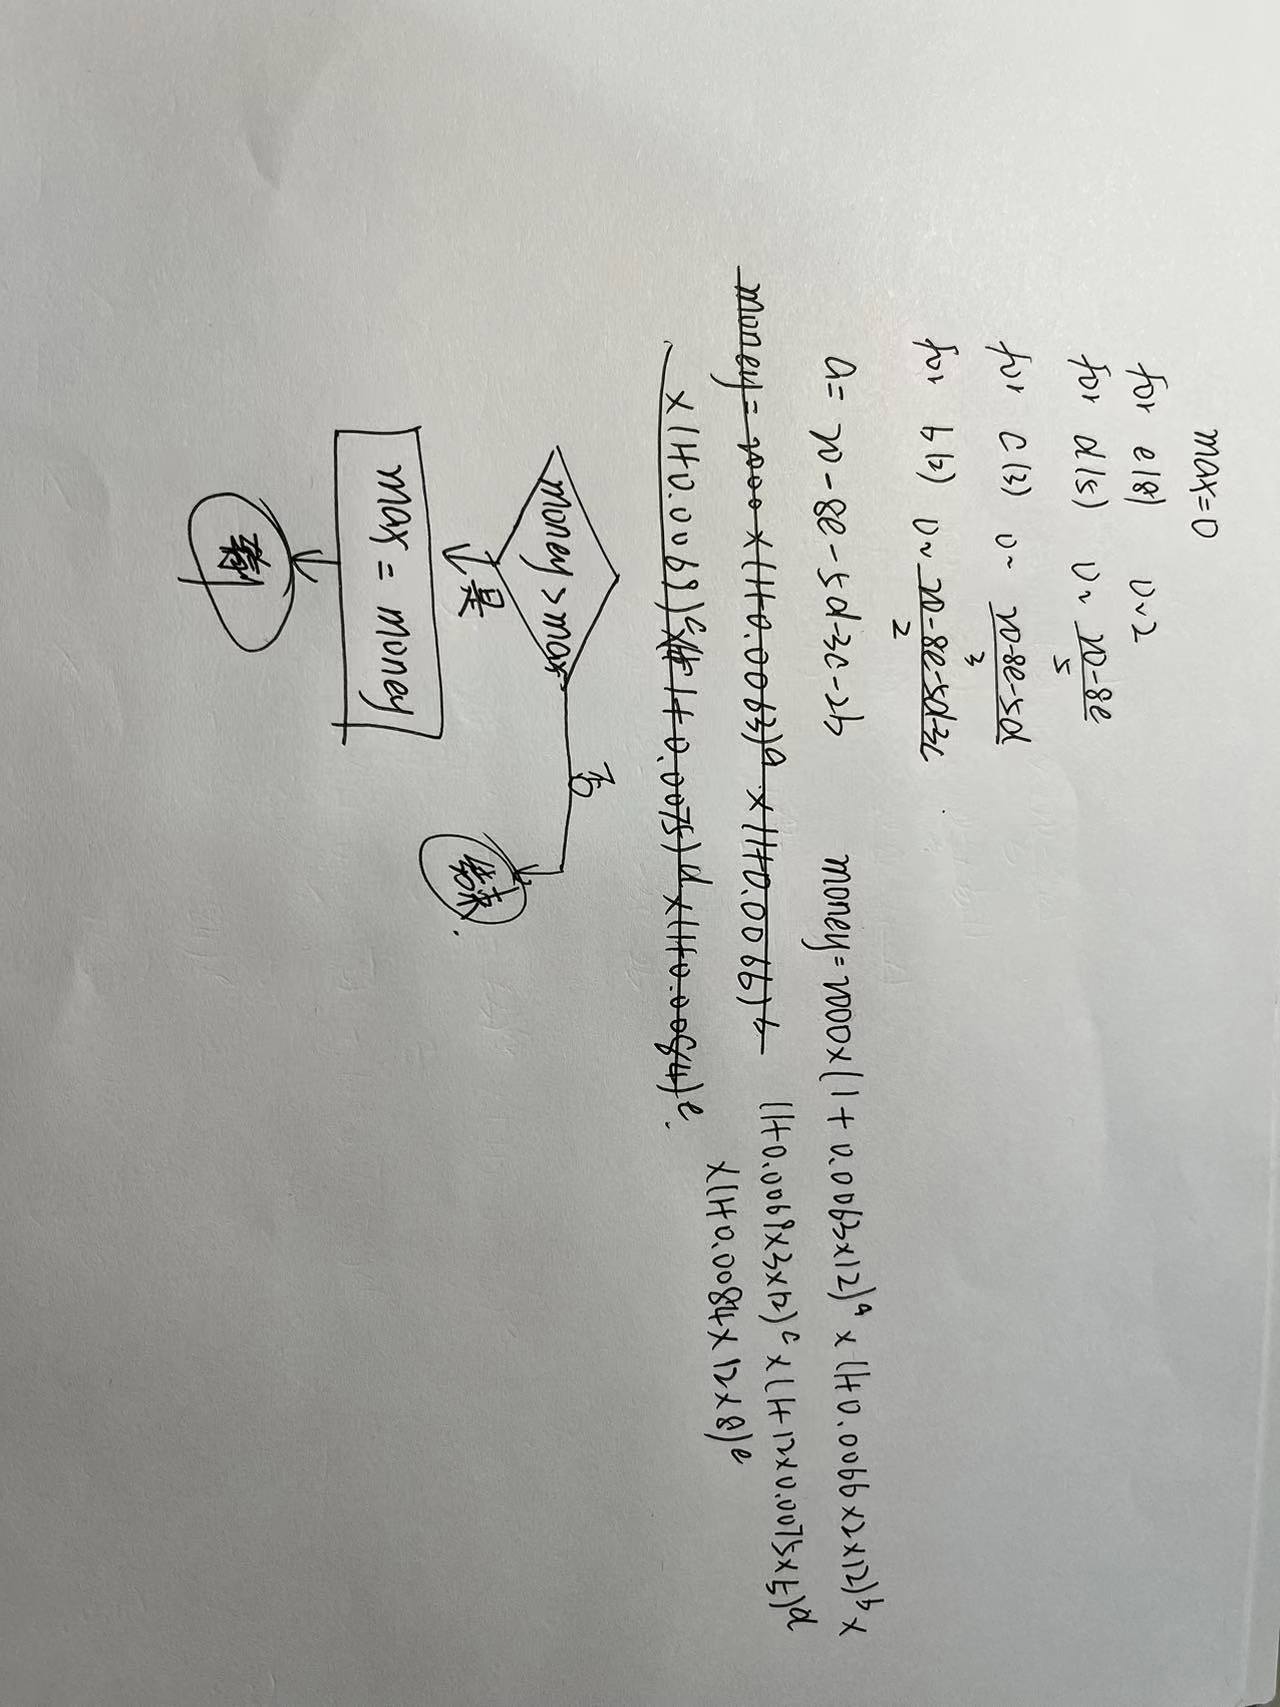 max=0
for e(8) 0~2
for d(5) 0~ 20-8e
5
for c(3) 0~ 20-8e-5d
3
for b(2) 0~ 20-8e-5d-3c
2
a= 20-8e-5d-3c-2b
money=2000×(1+0.0063×12)ᵃ×(1+0.0066×2×12)ᵇ×
(1+0.0069×3×12)ᶜ×(1+12×0.0075×5)ᵈ
×(1+0.0084×12×8)ᵉ
money=2000×(1+0.0063)ᵃ×(1+0.0066)ᵇ
×(1+0.0069)
1+0.0075)ᵈ×(1+0.0084)ᵉ.
money>max
否
是
结束
max=money